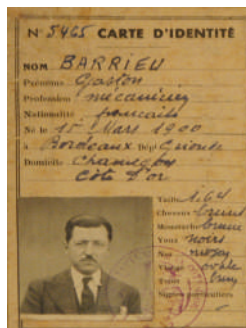 N° 5465 CARTE D'IDENTITÉ
NOM BARRIEU
Prénoms Gaston
Profession mécanicien
Nationalité française
Né le 15 Mars 1900
à Bordeaux Dépt Gironde
Domicile
Côte d'Or
Taille 1.64
Cheveux bruns
Moustache brune
Yeux noirs
Nez moyen
Visage ovale
Teint
Signes particuliers